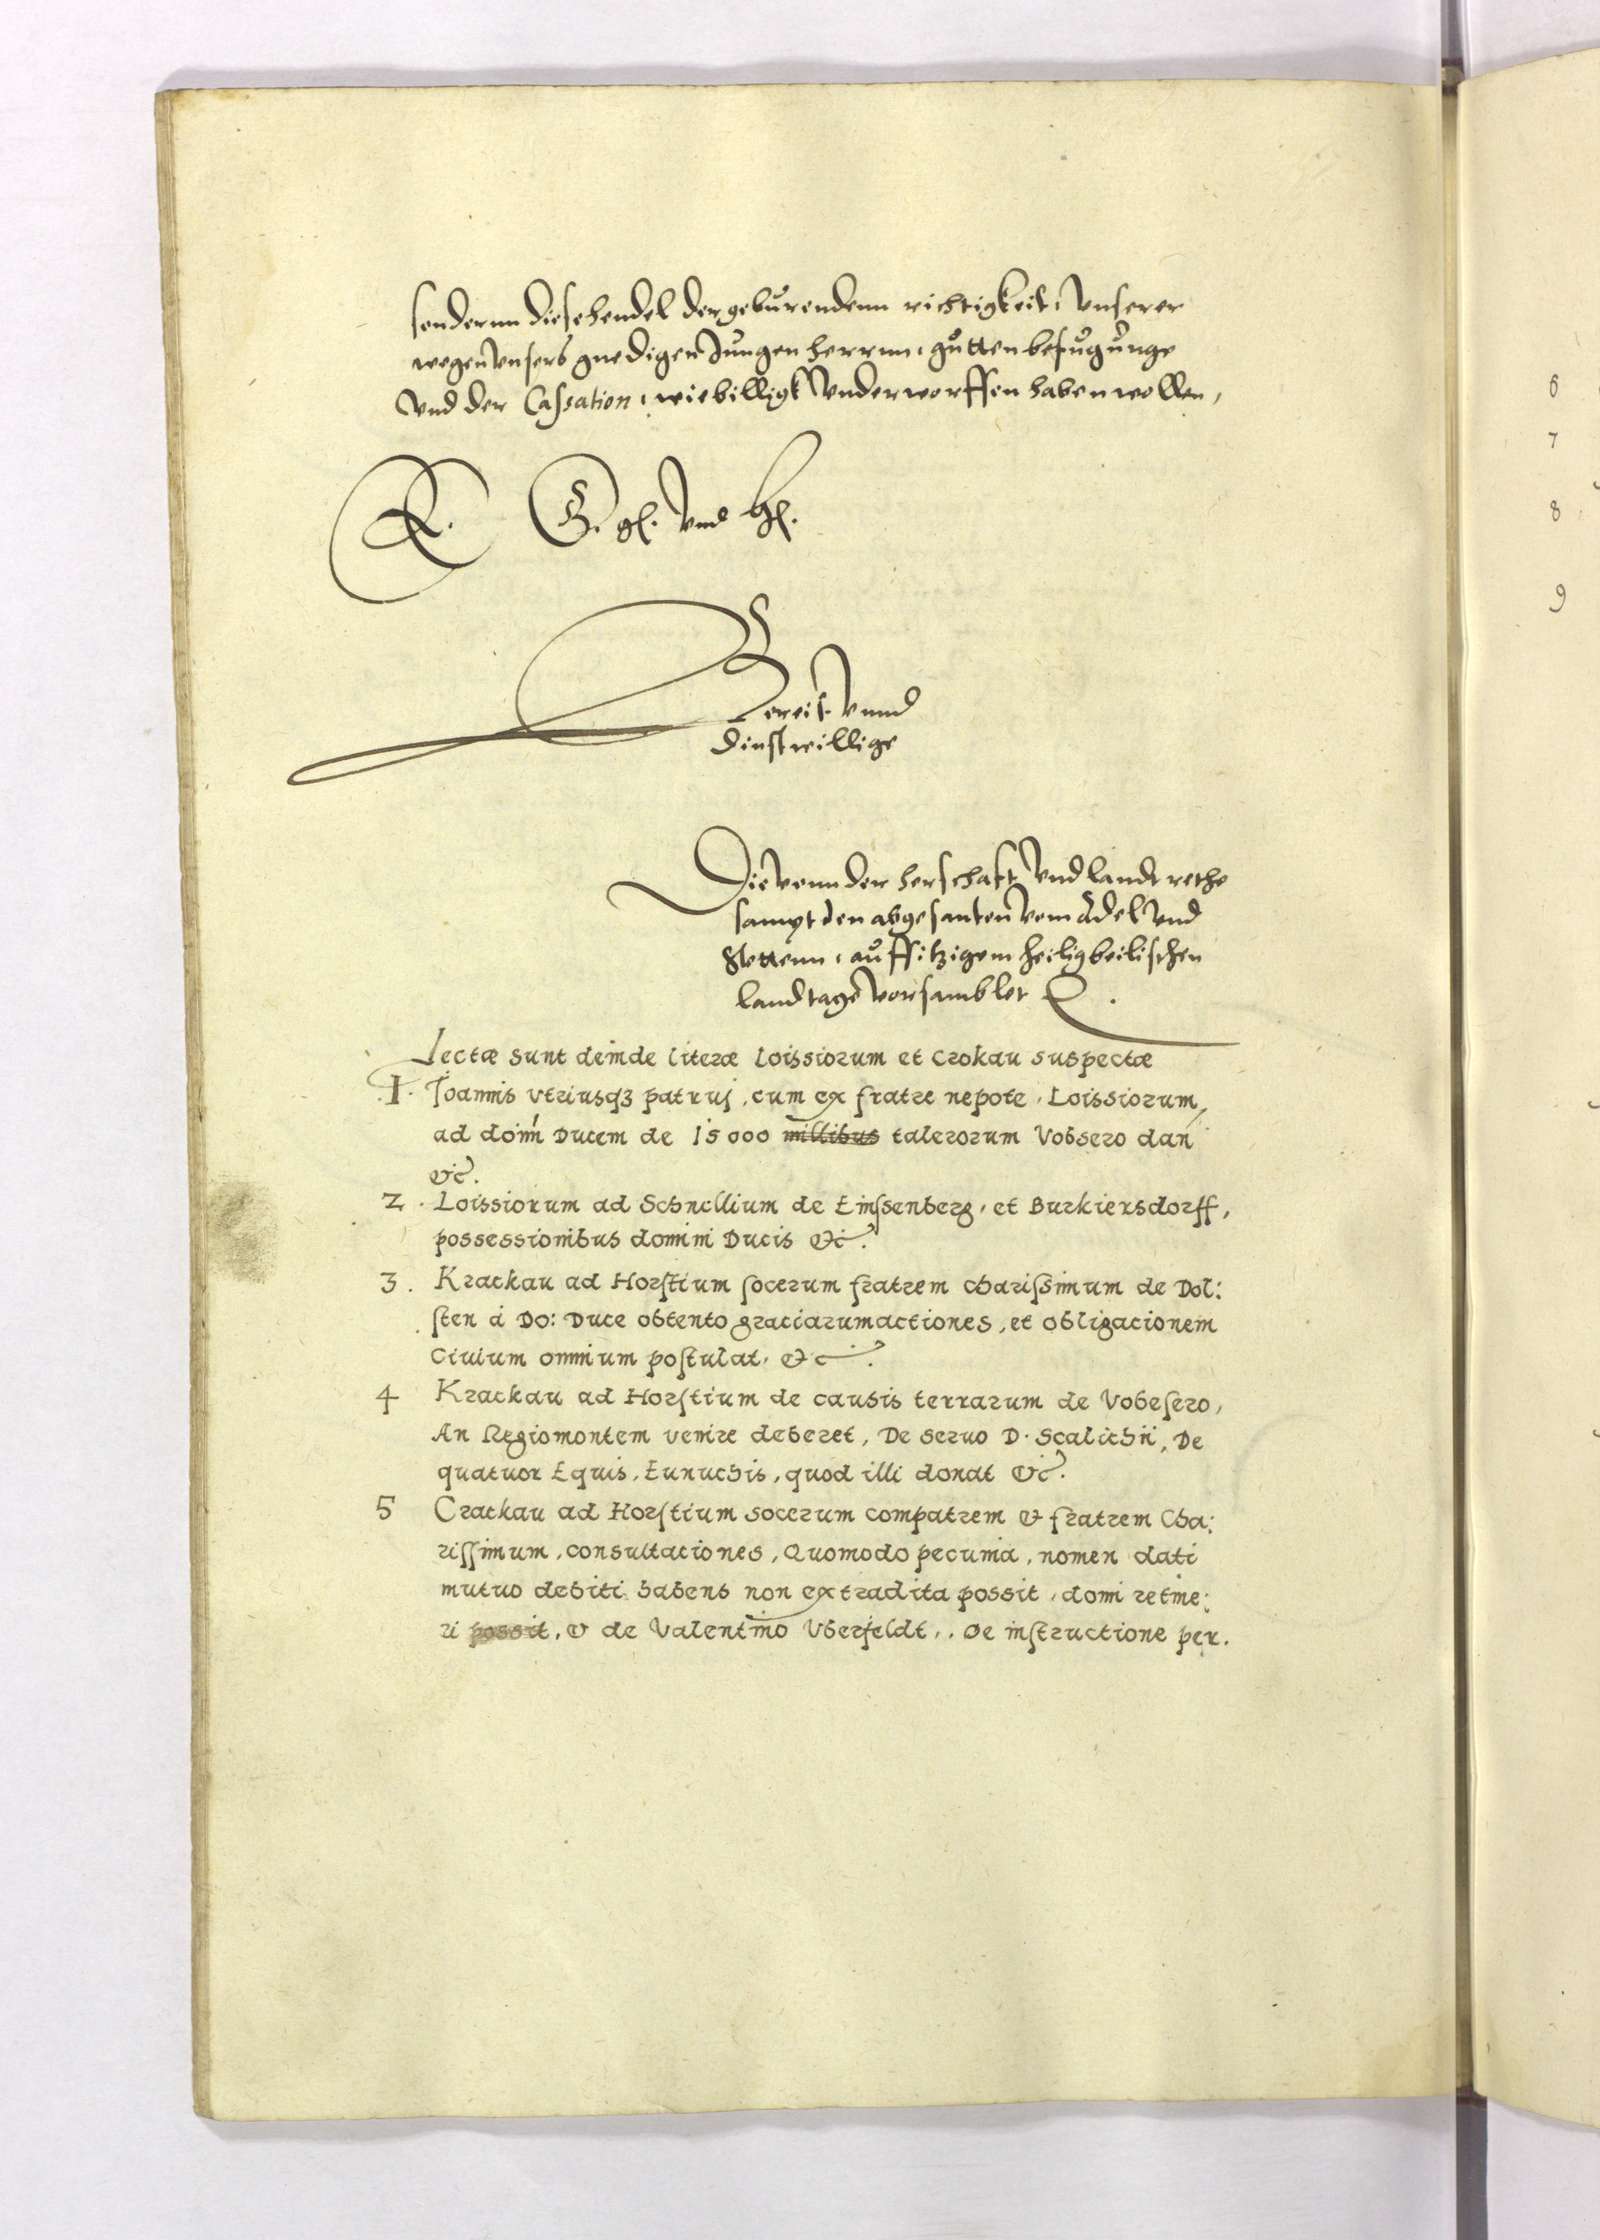 sondernn diese hendel der geburendenn richtigkeit, Vnserer
wegen Vnsers gnedigen Jungen herrnn, gutten befugunge
Vnd der Cassation, wie billigk Vnderworffen haben wollen,
E. G. gl. Vnd hl.
Bereit Vnnd
dinstwillige
Die Vonn der herschafft Vnd landt rethe
sampt den abgesanten Vom Adel Vnd
Stettenn, auff itzigem heiligbeilischen
landtage Vorsamblet
Lectæ sunt deinde literæ Loissiorum et Crokau suspectæ
1. Joannis vtriusq3 patruj, cum ex fratre nepote, Loissiorum,
ad domi Ducem de 15000 millibus talerorum Vobsero dan
etc.
2. Loissiorum ad Schnellium de Einssenberg, et Burkiersdorff,
possessionibus domini Ducis etc.
3. Krackau ad Horstium socerum fratrem charissimum de Dol:
sten à Do: Duce obtento graciarumactiones, et obligacionem
Ciuium omnium postulat, etc.
4 Krackau ad Horstium de causis terrarum de Vobesero,
An Regiomontem venire deberet, De seruo D. Scalichii, De
quatuor Equis, Eunuchis, quod illi donat etc.
5 Crackau ad Horstium socerum compatrem & fratrem Cha:
rissimum, consultaciones, Quomodo pecunia, nomen dati
mutuo debiti habens non extradita possit, domi retine:
ri possit, & de Valentino Vberfeldt,. De instructione per.
6
7
8
9